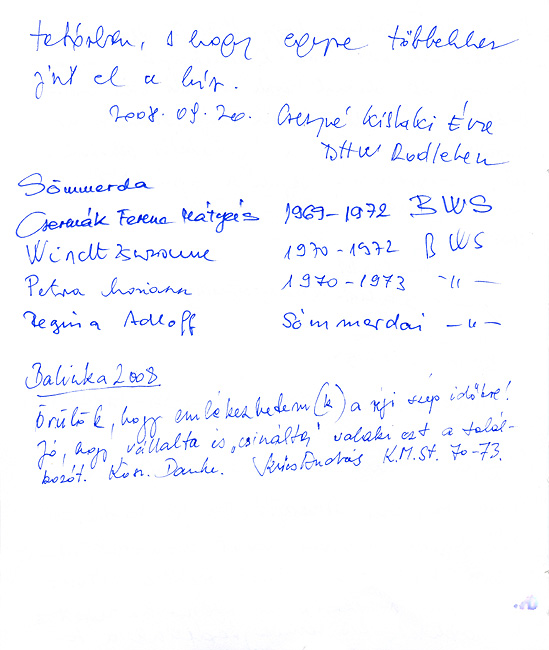 hogy egyre többekhez
jut el a hír.
2008. 09. 20. Kislaki Éva
DHW Rodleben
Sömmerda
Csermák Ferenc Mátyás 1969-1972 BWS
Windt Zsuzsanna 1970-1972 BWS
Petra 1970-1973 -"-
Regina Adloff Sömmerdai -"-
Balinka 2008
Örülök, hogy emlékezhetem(k) a régi szép időkre!
Jó, hogy vállalta és „csinálta” valaki ezt a talál-
kozót. Kösz. Danke. András K.M.St. 70-73.